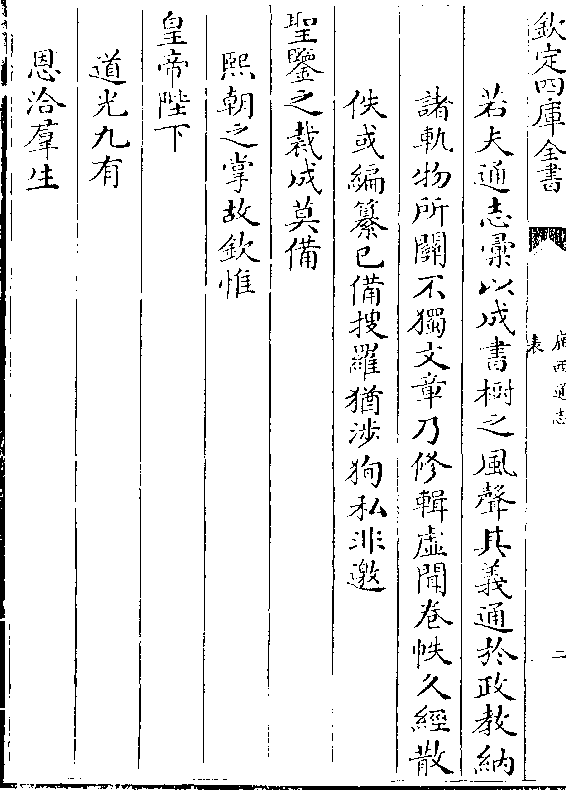 欽定四庫全書
廣西通志
表
二
若夫通志彙以成書樹之風聲其義通於政教納
諸軌物所關不獨文章乃修輯虛聞卷帙久經散
佚或編纂已備搜羅猶涉狥私非邀
聖鑒之裁成莫備
熙朝之掌故欽惟
皇帝陛下
道光九有
恩洽羣生